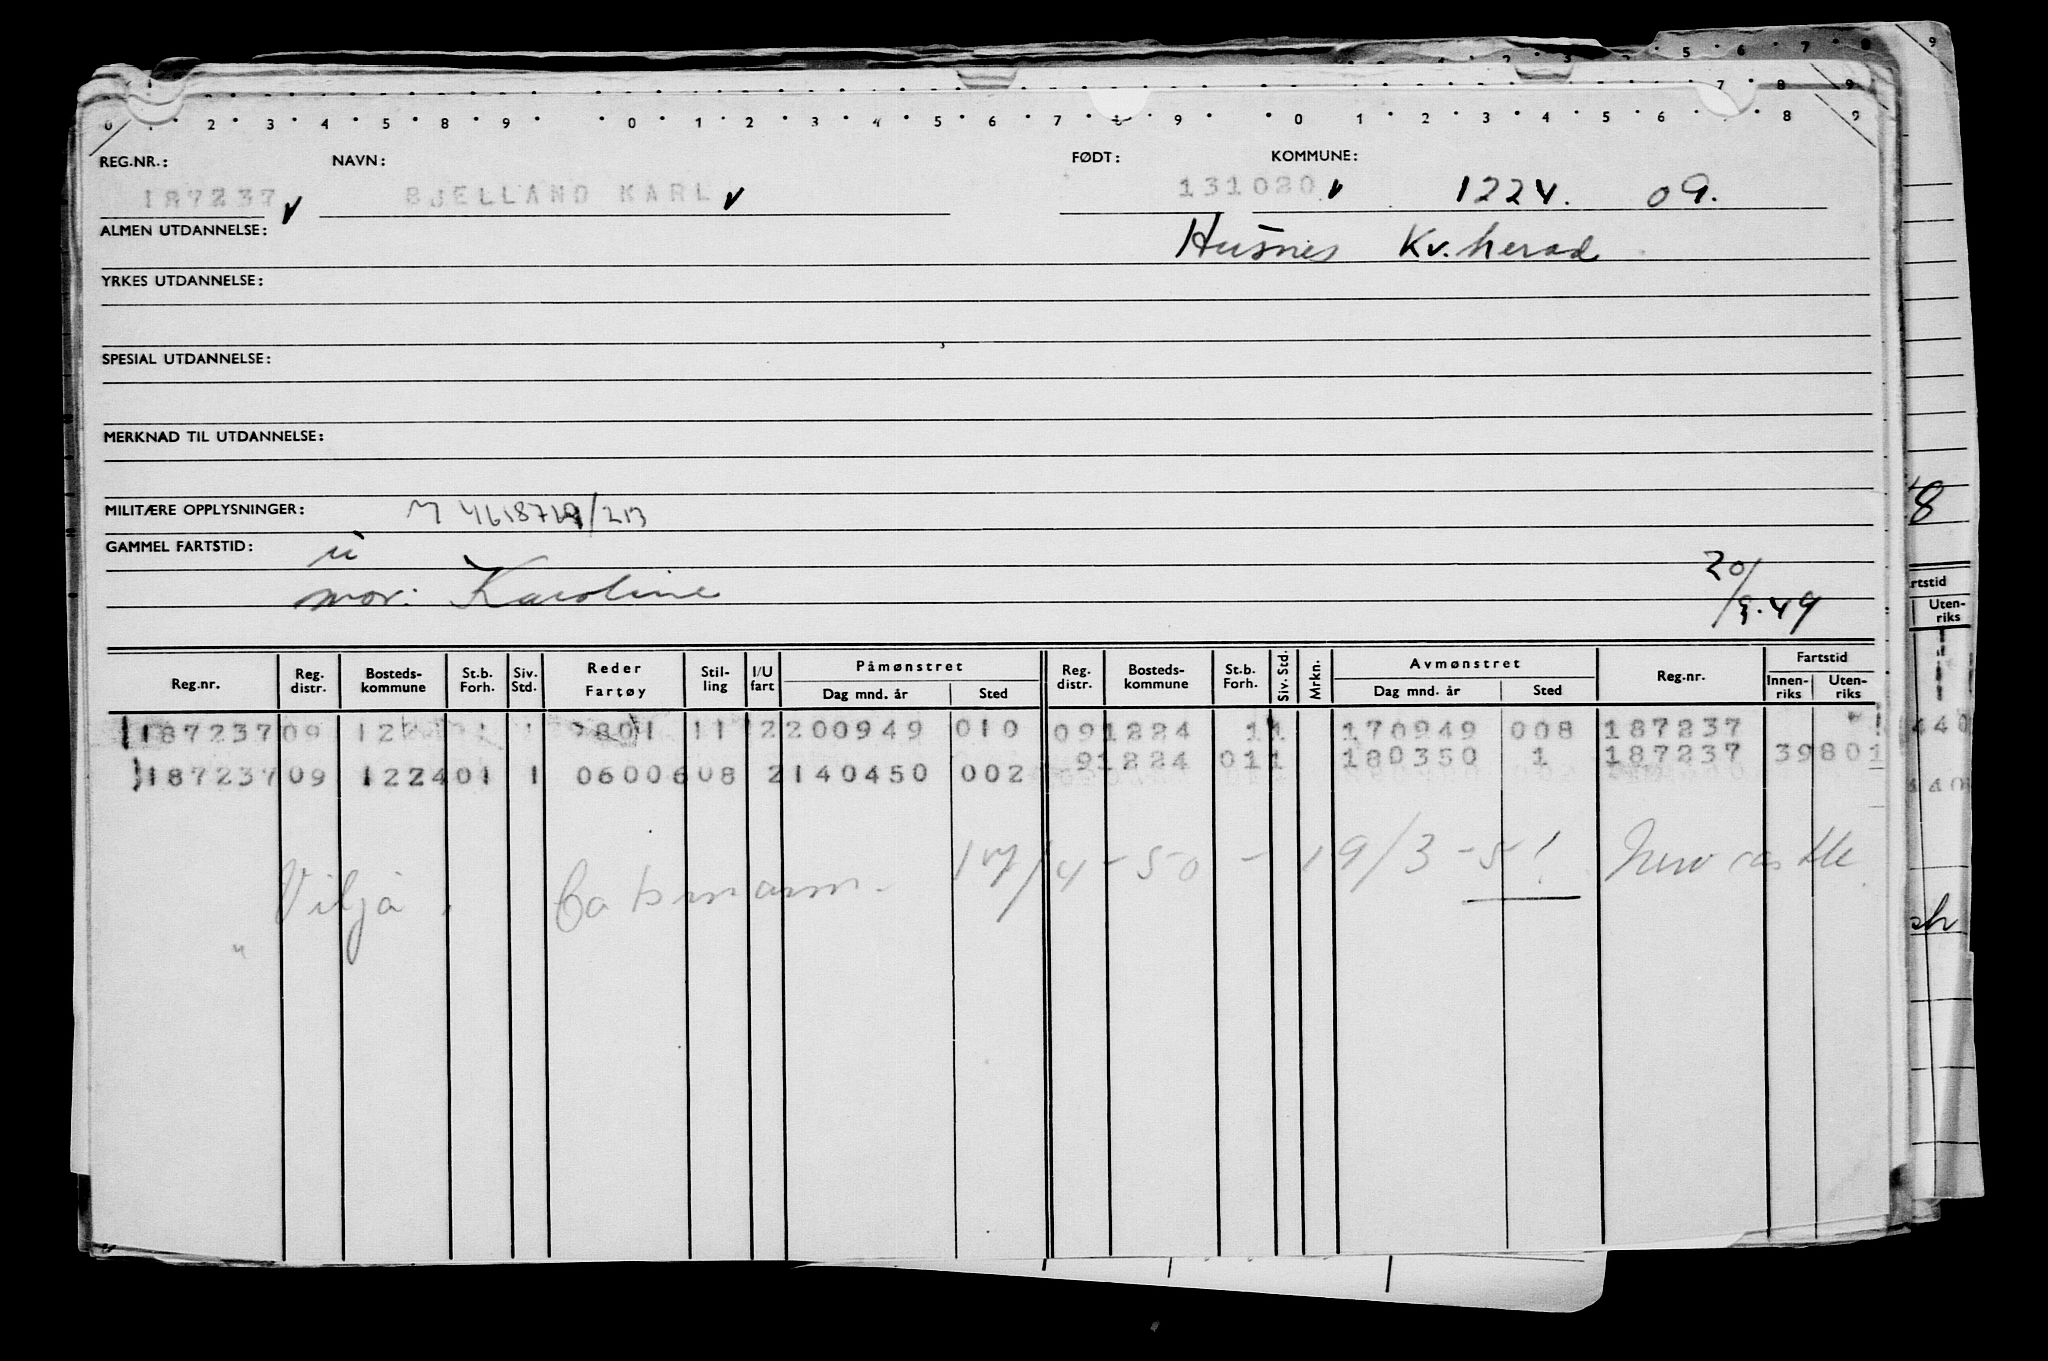 0 1 2 3 4 5 8 9 0 1 2 3 4 5 6 7 8 9 0 1 2 3 4 5 6 8 9
REG.NR.: NAVN: FØDT: KOMMUNE:
187237 BJELLAND KARL 131020 1224. 09.
ALMEN UTDANNELSE: Husnes Kv.herad
YRKES UTDANNELSE:
SPESIAL UTDANNELSE:
MERKNAD TIL UTDANNELSE:
MILITÆRE OPPLYSNINGER: M
GAMMEL FARTSTID: u
mor: Karoline 20/9.49
Reg.nr. Reg. distr. Bosteds-kommune St.b. Forh. Siv. Std. Reder Fartøy Stil-ling I/U fart Påmønstret Dag mnd. år Sted Reg. distr. Bosteds-kommune St.b. Forh. Siv. Std. Mrkn. Avmønstret Dag mnd. år Sted Reg.nr. Fartstid Innen-riks Uten-riks
187237 09 1 9801 11 2 200949 010 09 1224 11 170949 008 187237
91224 011 180350 1 187237 39801
187237 09 1224 01 1 06006 08 2 140450 002
Viljå. Båtsmann. 17/4-50 - 19/3-51 Newcastle.